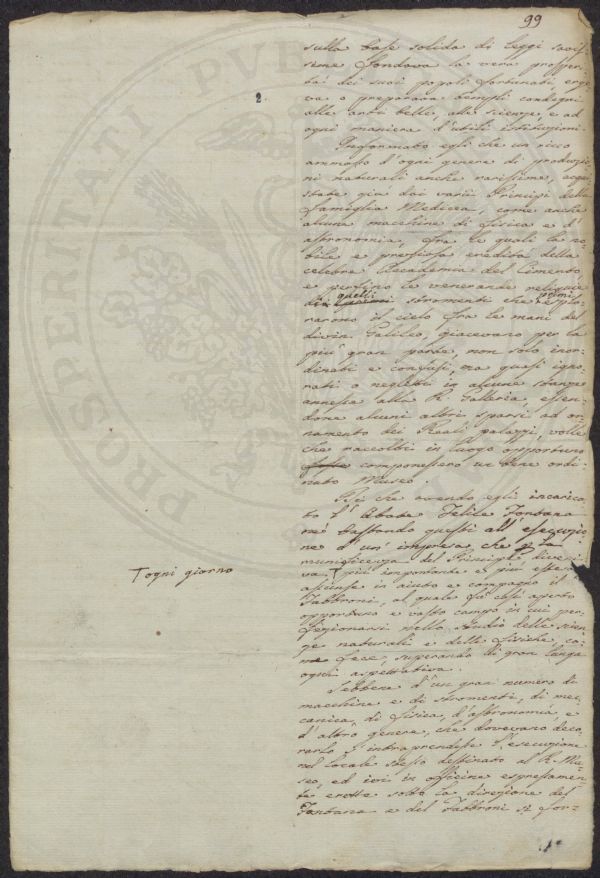 99
2.
sulla base solida di leggi savis-
sime fondava la vera prosperi-
tà dei suoi popoli fortunati, erge-
va o preparava templi condegni
alle arti belle, alle scienze, e ad
ogni maniera d'utili istituzioni.
Informato egli che un ricco
ammasso d'ogni genere di produzio-
ni naturali anche rarissime, acqui-
state già dai varii Principi della
famiglia Medicea, come anche
alcune macchine di fisica e d'
astronomia, fra le quali la no-
bile e preziosa eredità della
celebre Accademia del Cimento,
e perfino le venerande reliquie
di quelli stromenti che primi esplo-
rarono il cielo fra le mani del
divin Galileo, giacevano per la
più gran parte, non solo inor-
dinati e confusi, ma quasi igno-
rati o negletti in alcune stanze
annesse alla R. Galleria, essen-
done alcuni altri sparsi ad or-
namento dei Reali palazzi, volle
che raccolti in luogo opportuno
componessero un bene ordi-
nato Museo.
Di che avendo egli incarica-
to l'Abate Felice Fontana
né bastando questi all'esecuzio-
ne d'un'impresa che la
munificenza del Principe rendeva
più importante e più estesa
ogni giorno
assunse in aiuto e compagno il
Fabbroni, al quale fu così aperto
opportuno e vasto campo in cui per-
fezionarsi nello studio delle scien-
ze naturali e delle fisiche, co-
me fece, superando di gran lunga
ogni aspettativa.
Sebbene d'un gran numero di
macchine e di stromenti, di mec-
canica, di fisica, d'astronomia, e
d'altro genere, che dovevano deco-
rarlo s'intraprendesse l'esecuzione
nel locale stesso destinato al R. Mu-
seo, ed ivi in officine espressamen-
te erette sotto la direzione del
Fontana e del Fabbroni si for-
PROSPERITATI PVBLICAE